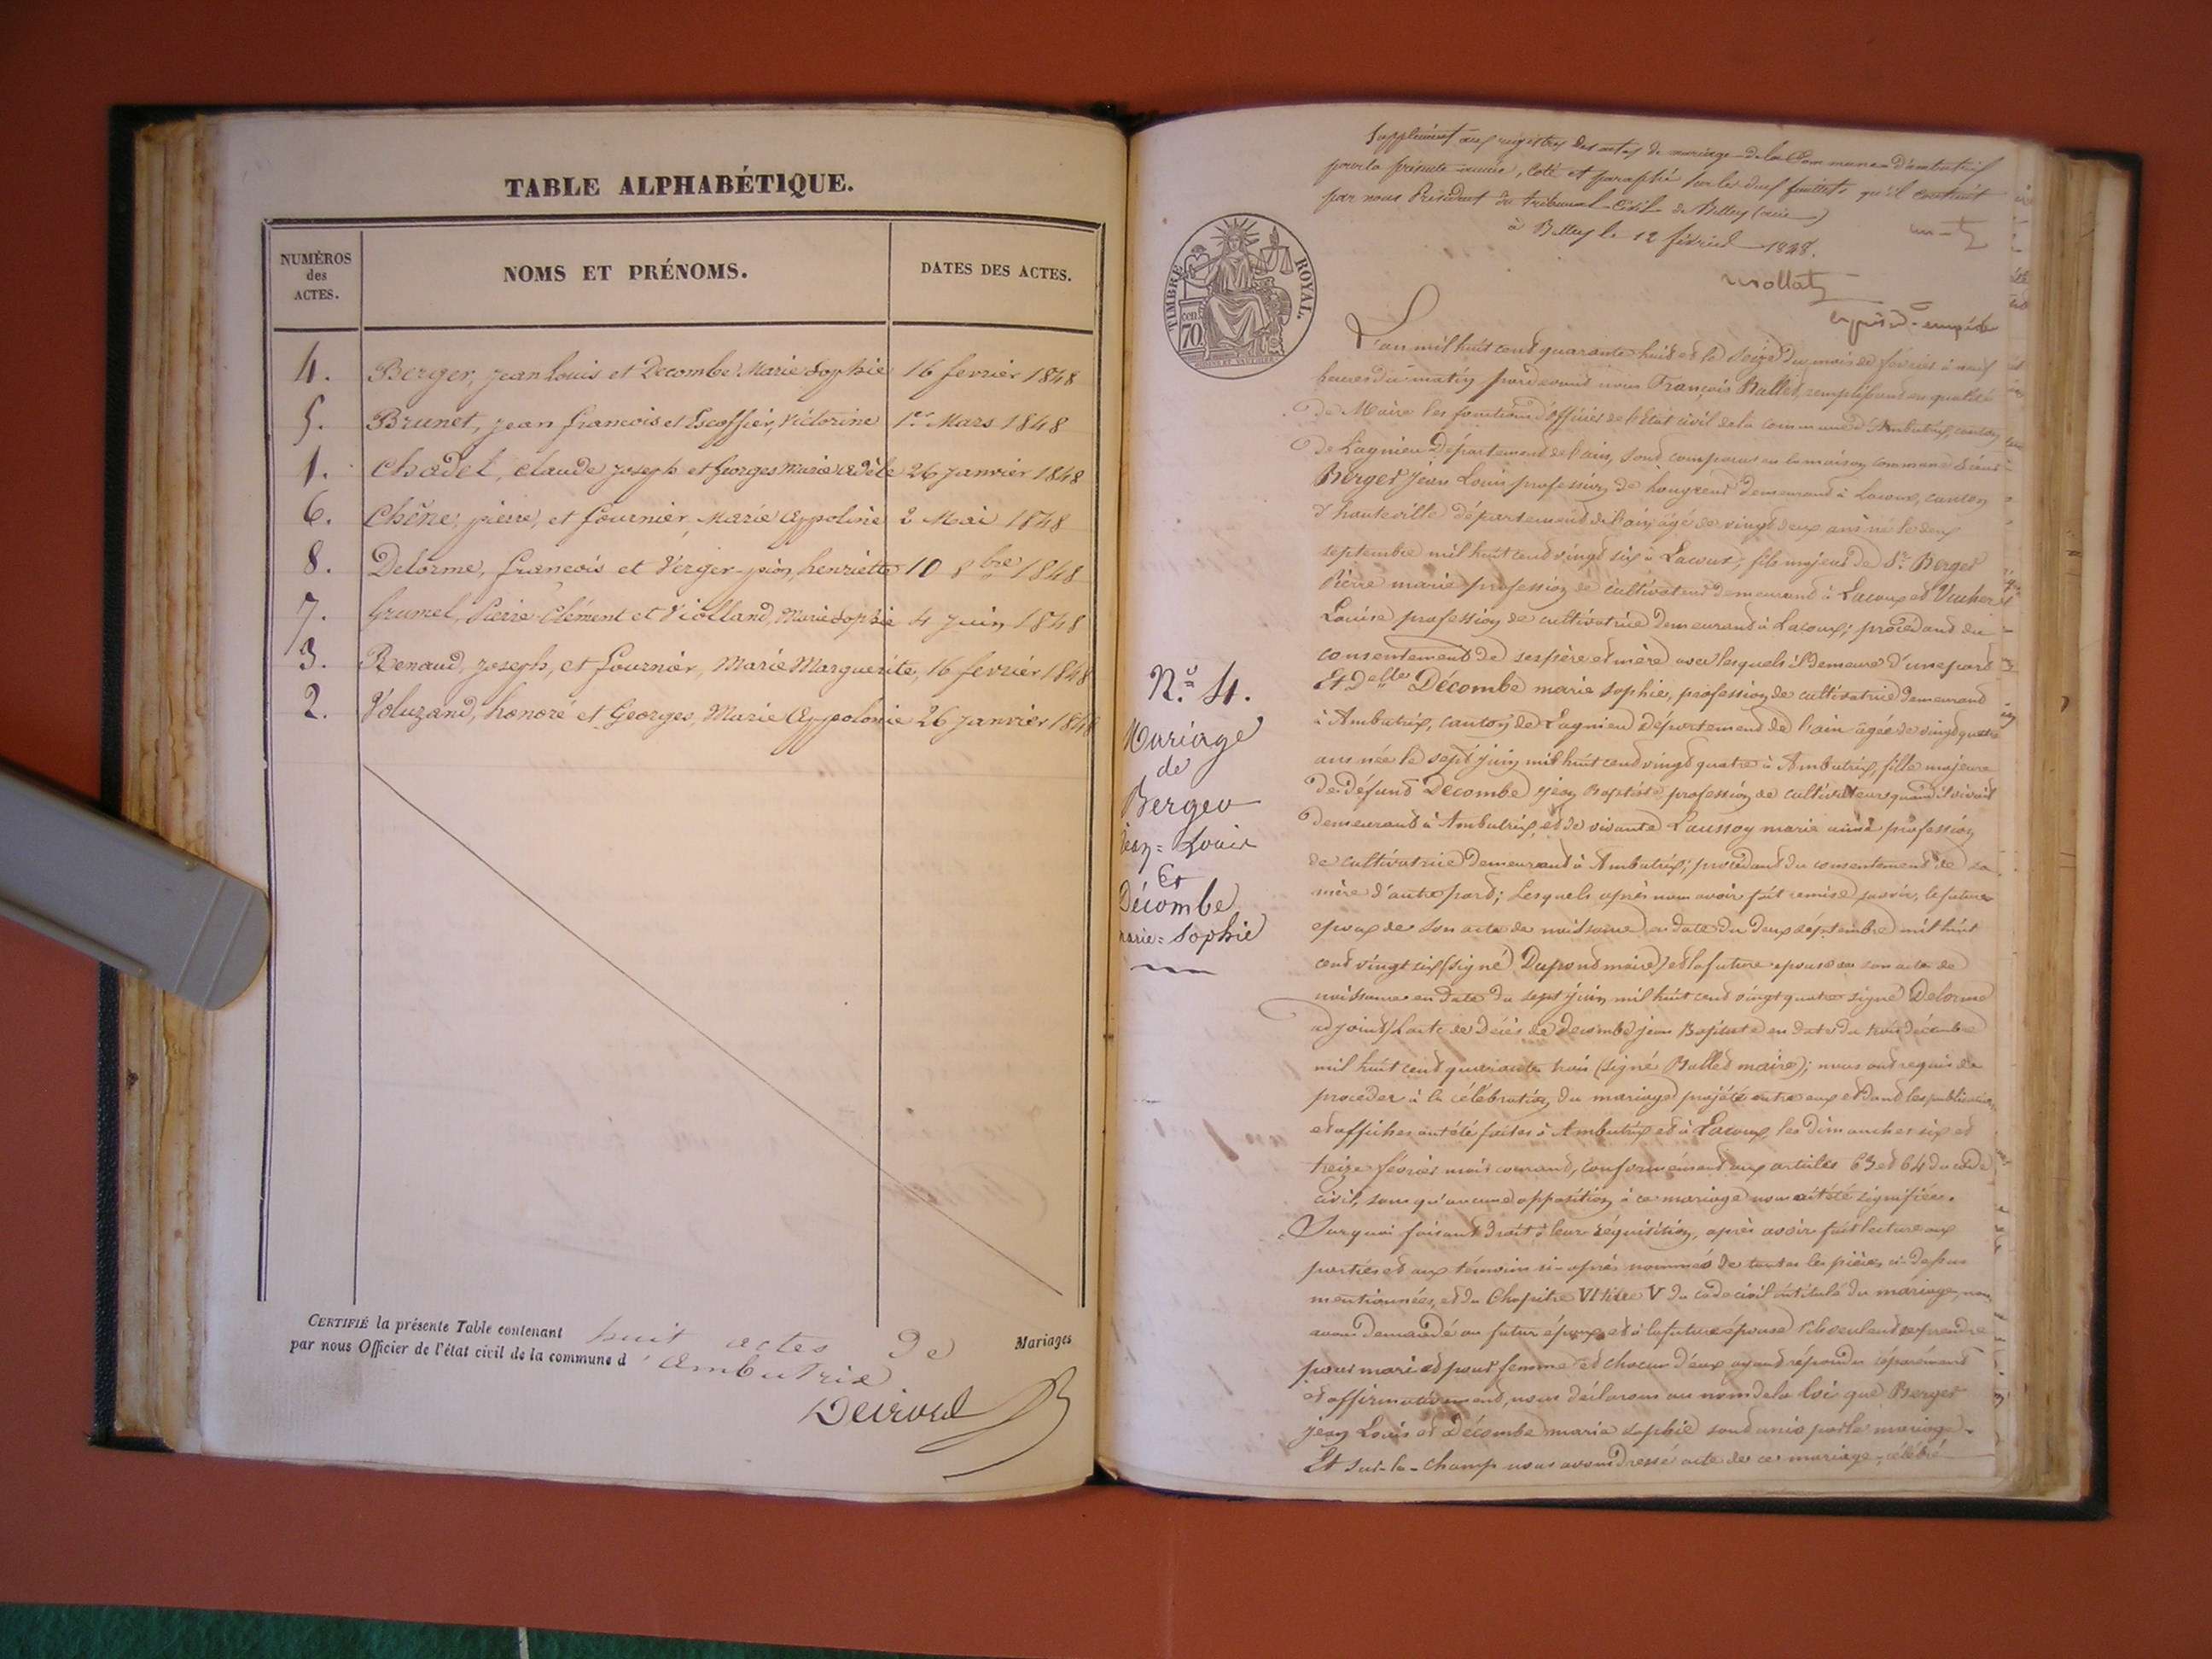 TABLE ALPHABÉTIQUE.
NUMÉROS
des
ACTES.
NOMS ET PRÉNOMS.
DATES DES ACTES.
4. Berger, jean Louis et Decombe Marie Sophie 16 fevrier 1848
5. Brunet, jean francois et Escoffier, Victorine 1er Mars 1848
1. Chadel, claude joseph et Georges Marie adèle 26 janvier 1848
6. Chêne, pierre, et fournier, Marie Appoline 2 Mai 1848
8. Delorme, francois et Verger-pion, henriette 10 8bre 1848
7. Grumel, Pierre Clément et Violland, Marie Sophie 4 juin 1848
3. Renaud, joseph, et fournier, Marie Marguerite, 16 fevrier 1848
2. Voluzand, honoré et Georges, Marie Appolonie 26 janvier 1848
CERTIFIÉ la présente Table contenant huit actes de Mariages
par nous Officier de l'état civil de la commune d'Ambutrix
Supplément aux registres des actes de mariage de la Commune d'ambutrix
pour la présente année, coté et paraphé sur les deux feuillets qu'il contient
par nous Président du tribunal Civil de Belley (ain)
à Belley le 12 février 1848.
TIMBRE ROYAL.
70
cen
L'an mil huit cent quarante huit et le seize du mois de février à neuf
heures du matin pardevant nous François Ballet, remplissant en qualité
de Maire les fonctions d'officier de l'Etat civil de la commune d'Ambutrix, canton
de Lagnieu Département de l'ain, sont comparus en la maison commune
Berger Jean Louis profession de demeurant à Lacoux, canton
d'hauteville département de l'ain âgé de vingt deux ans né le deux
septembre mil huit cent vingt six à Lacoux, fils majeur de Sr Berger
Pierre marie profession de cultivateur demeurant à Lacoux et
Louise profession de cultivatrice demeurant à Lacoux; procédant du
consentement de ses père et mère avec lesquels il demeure d'une part
Et Delle Décombe marie sophie, profession de cultivatrice demeurant
à Ambutrix, canton de Lagnieu département de l'ain âgée de vingt quatre
ans née le sept juin mil huit cent vingt quatre à Ambutrix, fille majeure
de défunt Décombe jean Baptiste profession de cultivateur quand il vivait
demeurant à Ambutrix, et de vivante Laussoy marie aimé profession
de cultivatrice demeurant à Ambutrix; procédant du consentement de sa
mère d'autre part; Lesquels après nous avoir fait remise savoir, le futur
epoux de son acte de naissance en date du deux septembre mil huit
cent vingt six (signé Dupont maire) et la future epouse de son acte de
naissance en date du sept juin mil huit cent vingt quatre signé Delorme
adjoint) l'acte de Décès de Decombe jean Baptiste en date du trois décembre
mil huit cent quarante trois (signé Ballet maire); nous ont requis de
proceder à la célébration du mariage projété entre eux et dont les publications
et affiches ont été faites à Ambutrix et à Lacoux, les dimanches six et
treize février mois courant, conformément aux articles 63 et 64 du code
Civil, sans qu'aucune opposition à ce mariage nous ait été signifiée.
Sur quoi faisant droit à leur réquisition, après avoir fait lecture aux
parties et aux témoins ci-après nommés de toutes les pièces ci-dessus
mentionnées, et du Chapitre VI titre V du code civil intitulé du mariage, nous
avons demandé au futur époux et à la future épouse s'ils veulent se prendre
pour mari et pour femme et chacun d'eux ayant répondu séparément
et affirmativement, nous déclarons au nom de la loi que Berger
jean Louis et Décombe marie sophie sont unis par le mariage.
Et sur-le-champ nous avons dressé acte de ce mariage, célébré
No 4.
Mariage
de
Berger
Jean = Louis
Et
Décombe
marie = Sophie